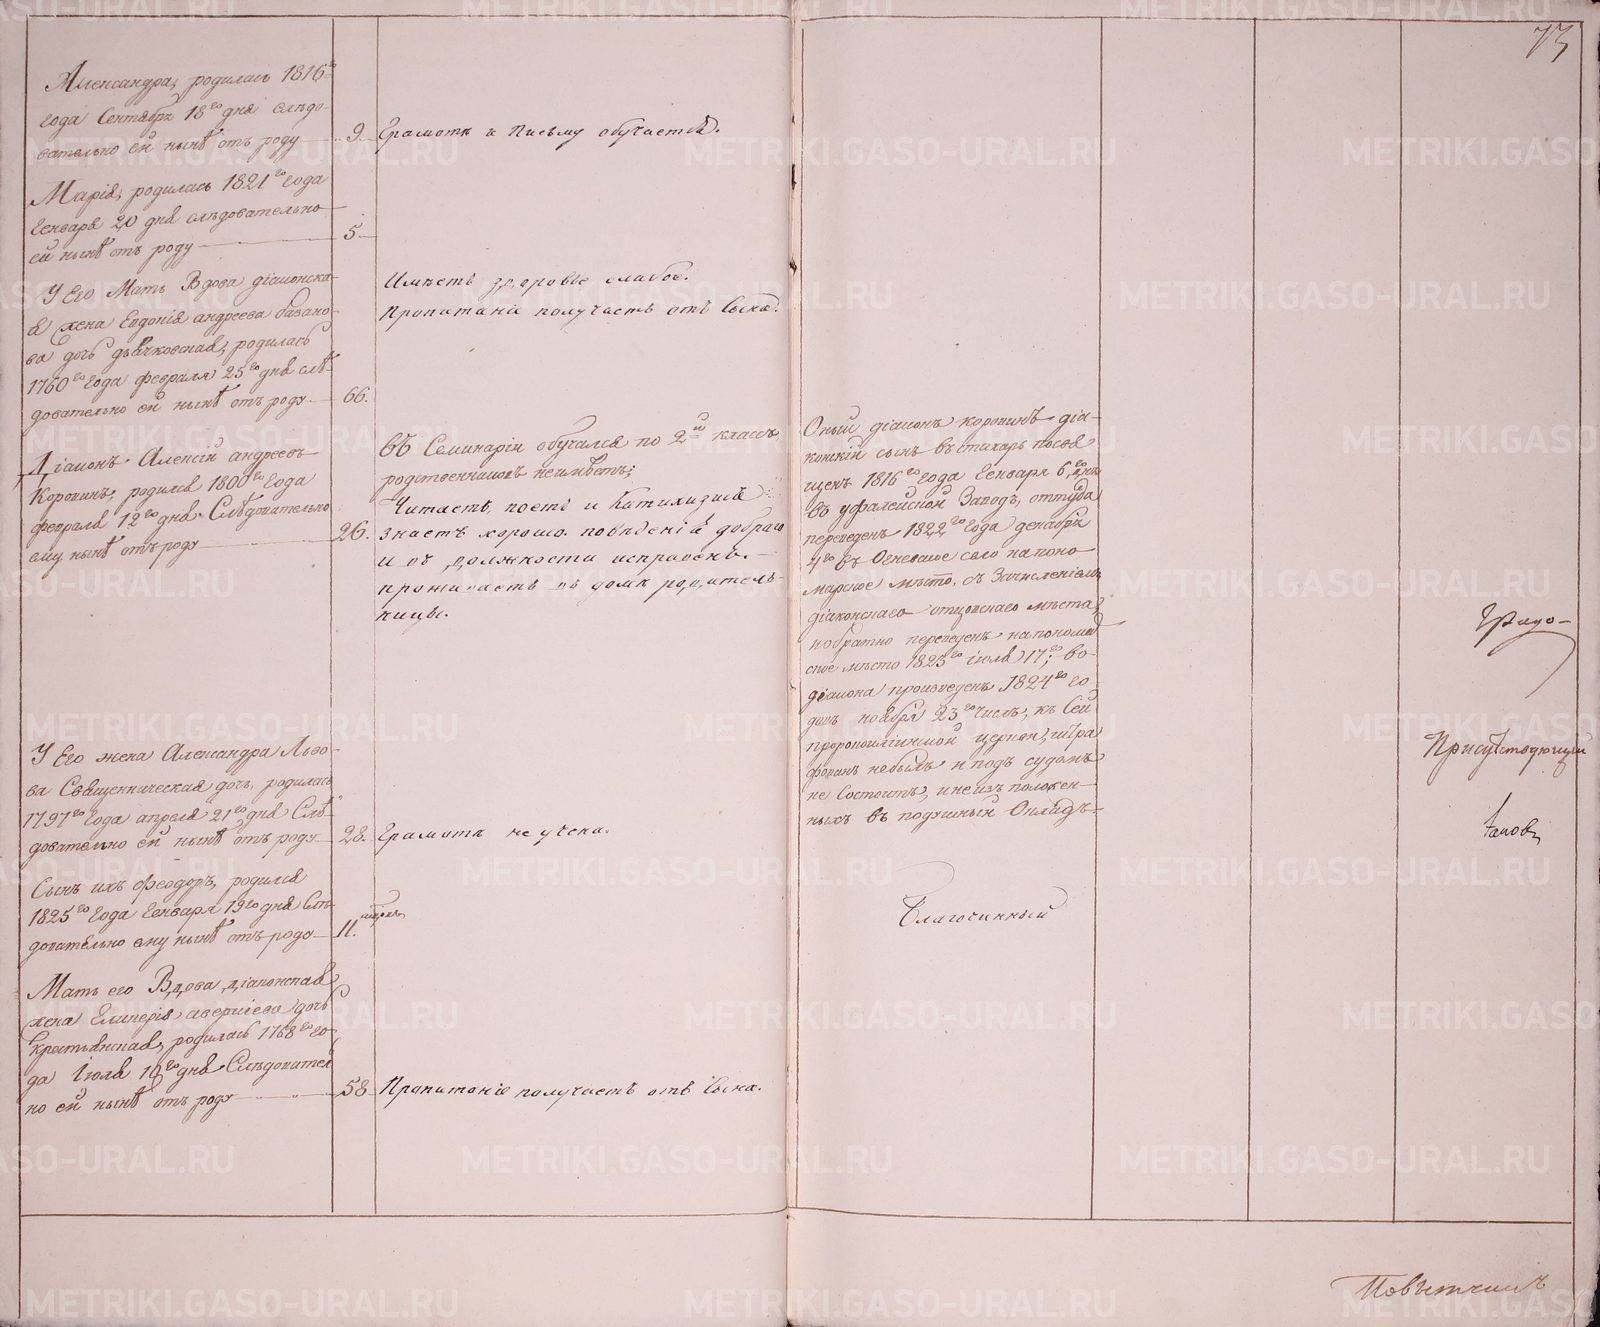 73
Александра, родилась 1816го
года Сентября 18го дня слѣдо-
вательно ей нынѣ отъ роду
9
Грамотѣ и письму обучается.
Марія, родилась 1821го года
Генваря 20 дня слѣдовательно
ей нынѣ отъ роду
5
У Его Мать Вдова діаконска-
я жена Евдокія андреева
ва дочь дьячковская, родилась
1760го года февраля 25го дня слѣ-
довательно ей нынѣ отъ роду
66.
Имѣетъ здоровье слабое.
Пропитаніе получаетъ отъ Сына.
Діаконъ Алексій андреевъ
Коровинъ, родился 1800го года
февраля 12го дня Слѣдовательно
ему нынѣ отъ роду
26.
въ Семинаріи обучался по 2й классъ
родственниковъ неимѣетъ;
Читаетъ, поетъ и Катихизисъ
знаетъ хорошо. поведенія добраго
и въ должности исправенъ.
проживаетъ въ домѣ родитель-
ницы.
У Его жена Александра Льво-
ва Священническая дочь, родилась
1797го года апреля 21го дня Слѣ-
довательно ей нынѣ отъ роду
28.
Грамотѣ не учена.
Сынъ ихъ Феодоръ, родился
1825го года Генваря 19го дня Слѣ-
довательно ему нынѣ отъ рода
11.
Мать его Вдова діаконская
жена Гликерія аверкіева дочь
крестьянская, родилась 1768го го-
да Іюля 10го дня Слѣдовател
но ей нынѣ отъ роду
58
Пропитаніе получаетъ отъ Сына.
Оный діаконъ коровинъ діа-
конскій сынъ въ стихарь посвя
щенъ 1816го года Генваря 6го дня
въ уфалейской Заводъ, оттуда
переведенъ 1822го года декабря
4го въ Огневское село на поно
марское мѣсто, съ Зачисленіемъ
діаконскаго отцовскаго мѣста,
и обратно переведенъ на понома
ское мѣсто 1823го іюля 17го; во
діакона произведенъ 1824го го-
да ноября 23го числа, къ Сей
церкви, штра
фованъ небылъ и подъ судомъ
не Состоитъ, и неизъ положен-
ныхъ въ подушный Окладъ.
Благочинный
Градо-
Присутствующій
Повытчикъ
METRIKI.GASO-URAL.RU